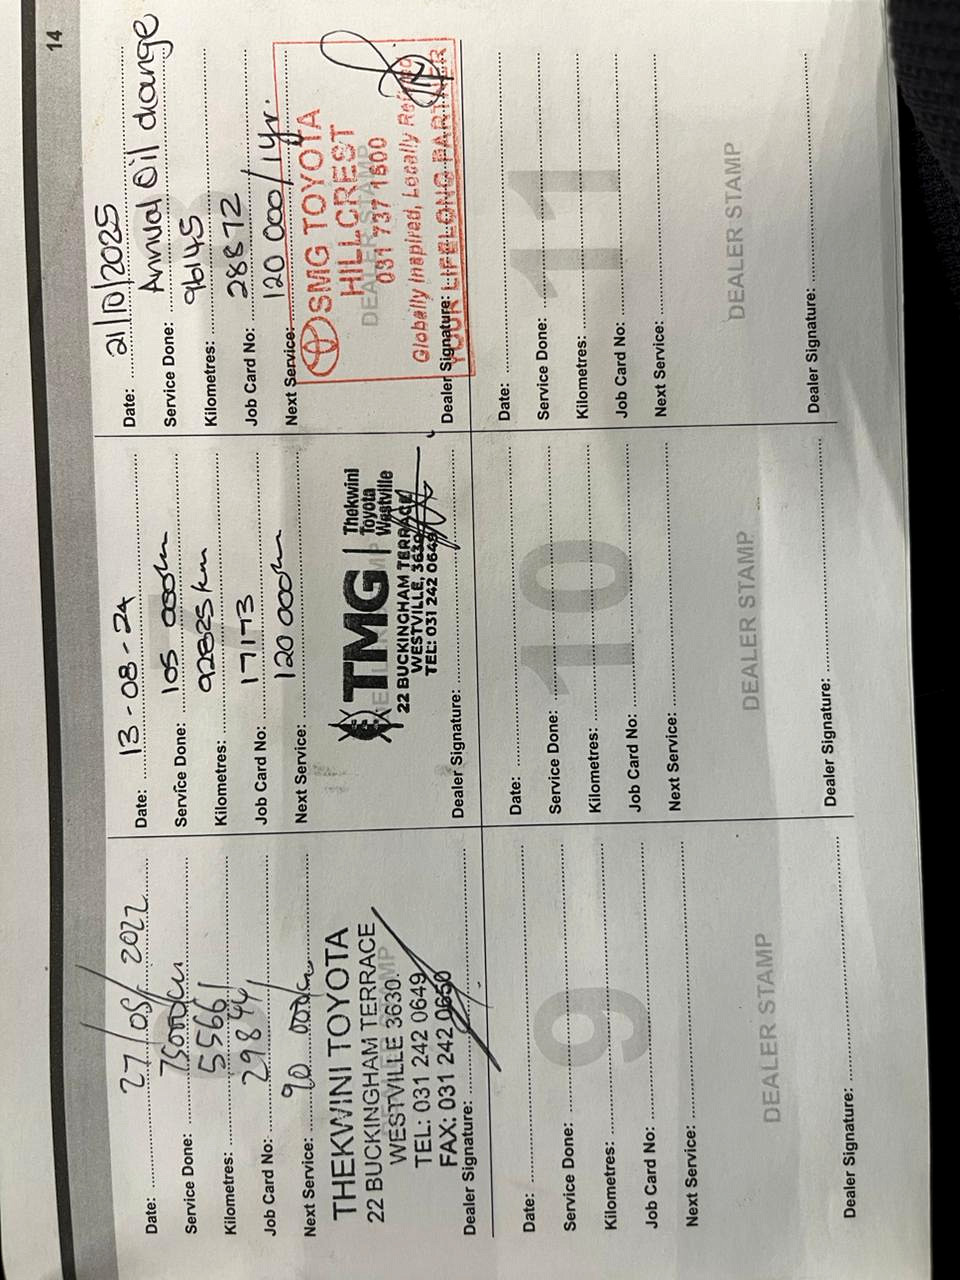 14
Date: 27/05/2022
Service Done: 75000km
Kilometres: 55661
Job Card No: 29844
Next Service: 90 000km
THEKWINI TOYOTA
22 BUCKINGHAM TERRACE
WESTVILLE 3630
TEL: 031 242 0649
FAX: 031 242 0650
Dealer Signature:
Date: 13-08-24
Service Done: 105 000km
Kilometres: 92825km
Job Card No: 17173
Next Service: 120 000km
TMG | Thekwini
Toyota
Westville
22 BUCKINGHAM TERRACE
WESTVILLE, 3630
TEL: 031 242 0649
Dealer Signature:
Date: 21/10/2025
Service Done: Annual Oil change
Kilometres: 96145
Job Card No: 28872
Next Service: 120 000/1yr.
SMG TOYOTA
HILLCREST
DEALER STAMP
031 737 1500
Globally Inspired, Locally Refined
YOUR LIFELONG PARTNER
Dealer Signature:
9
Date:
Service Done:
Kilometres:
Job Card No:
Next Service:
DEALER STAMP
Dealer Signature:
10
Date:
Service Done:
Kilometres:
Job Card No:
Next Service:
DEALER STAMP
Dealer Signature:
11
Date:
Service Done:
Kilometres:
Job Card No:
Next Service:
DEALER STAMP
Dealer Signature: